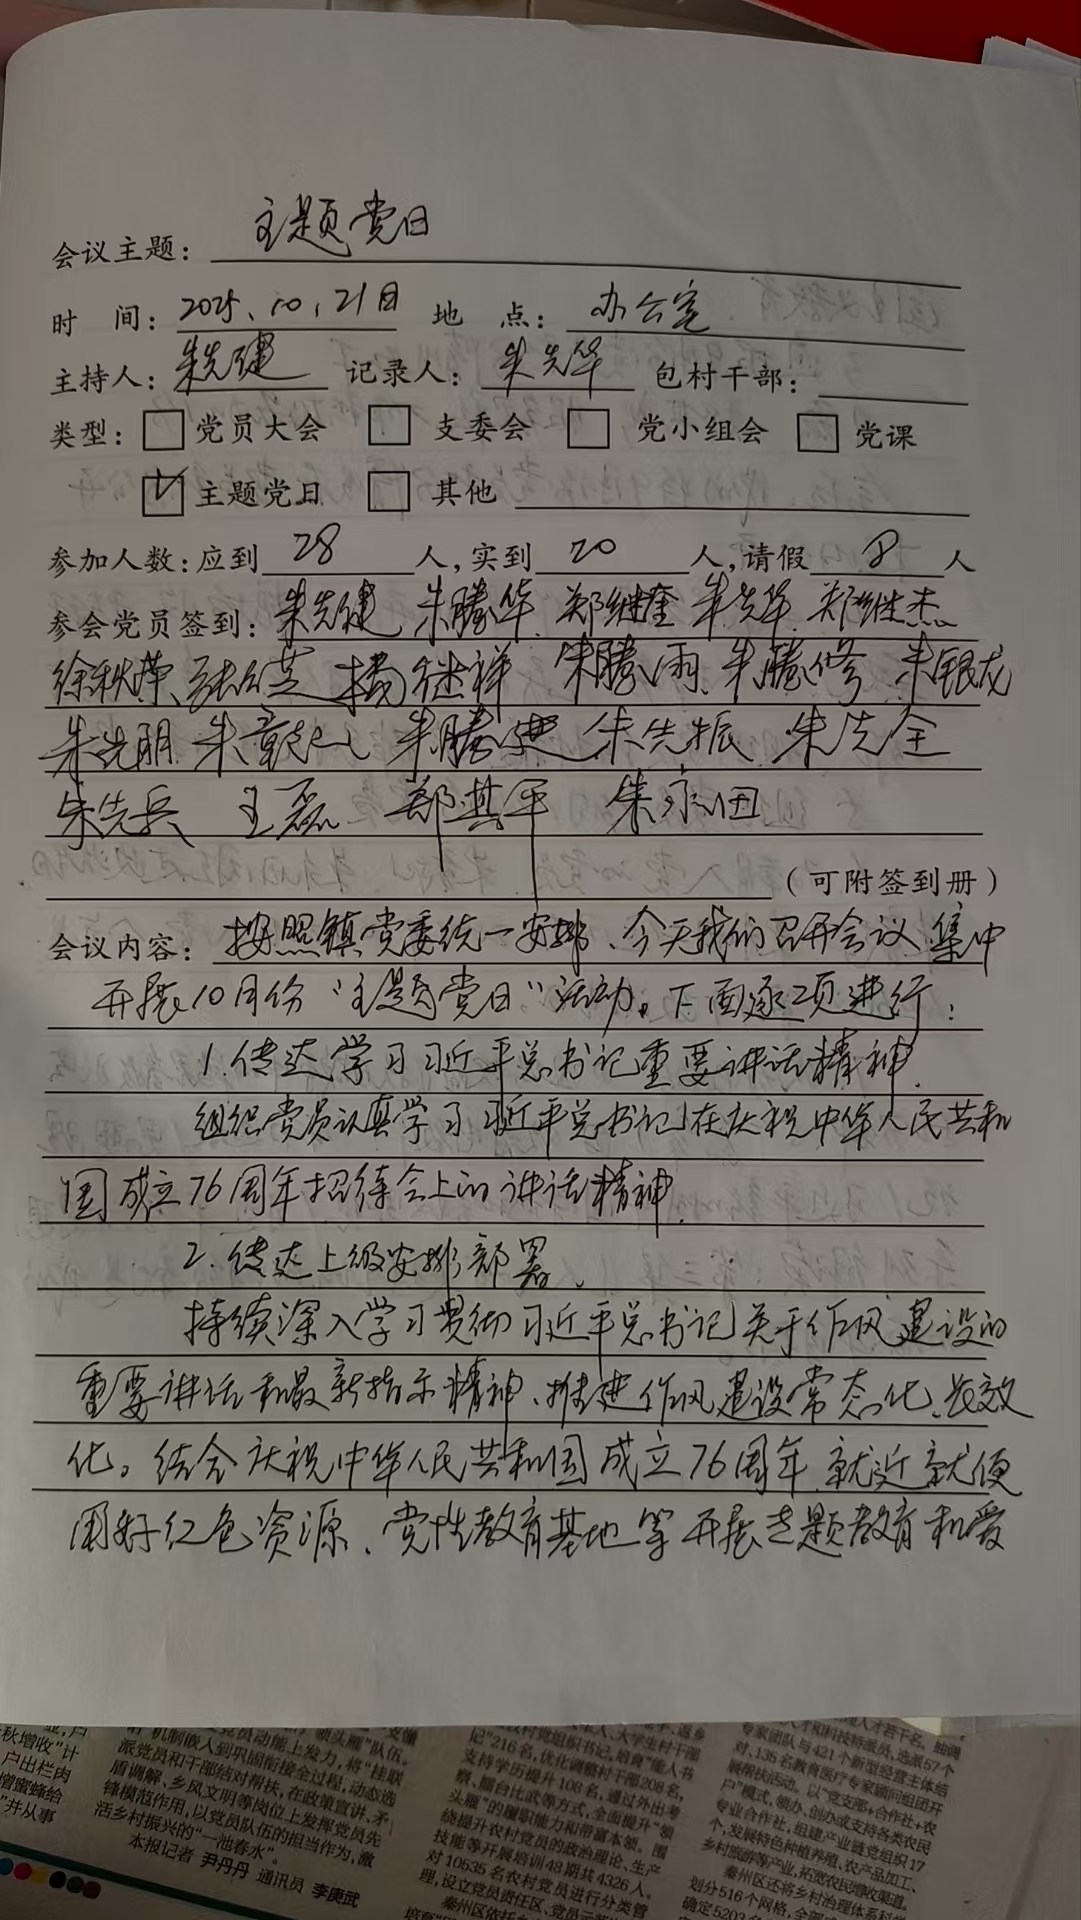 会议主题：主题党日
时 间：2025、10、21日 地 点：办公室
主持人：朱先健 记录人：朱先华 包村干部：
类型：党员大会 支委会 党小组会 党课
主题党日 其他
参加人数：应到28人，实到20人，请假8人
参会党员签到：朱先健 朱腾华 郑继奎 朱先华 郑继杰
徐秋荣 杨继祥 朱腾雨 朱腾修 朱银龙
朱先明 朱腾建 朱先振 朱先全
朱先兵 王磊 郑其军 朱永田
（可附签到册）
会议内容：按照镇党委统一安排、今天我们召开会议 集中
开展10月份“主题党日”活动。下面逐项进行：
1.传达学习习近平总书记重要讲话精神.
组织党员认真学习习近平总书记在庆祝中华人民共和
国成立76周年招待会上的讲话精神.
2.传达上级安排部署、
持续深入学习贯彻习近平总书记关于作风建设的
重要讲话和最新指示精神、推进作风建设常态化、长效
化。结合庆祝中华人民共和国成立76周年 就近就便
用好红色资源、党性教育基地等开展主题教育和爱
秋增收”计
户出栏肉
增蜜蜂给
”并从事
派党员和干部结对帮扶，在政策宣讲、矛
盾调解、乡风文明等岗位上发挥党员先
锋模范作用，以党员队伍的担当作为，激
活乡村振兴的“一池春水”。
本报记者 尹丹丹 通讯员 李庚武
记”216名，优化调整村干部208名，
支持学历提升108名，通过外出考
察、擂台比武等方式，全面提升“领
头雁”的履职能力和带富本领。围
绕提升农村党员的政治理论、生产
技能等开展培训48期共4326人。
对10535名农村党员进行分类管
理，设立党员责任区、党员示范
专家团队与421个新型经营主体结
对，135名教育医疗专家顾问组团开
展帮扶活动。以“党支部+合作社+农
户”模式，领办、创办或支持各类农民
专业合作社，组建产业链党组织17
个，发展特色种植养殖、农产品加工、
乡村旅游等产业，拓宽农民增收渠道。
秦州区还将乡村治理体系科
划分516个网格，全部
确定5203名